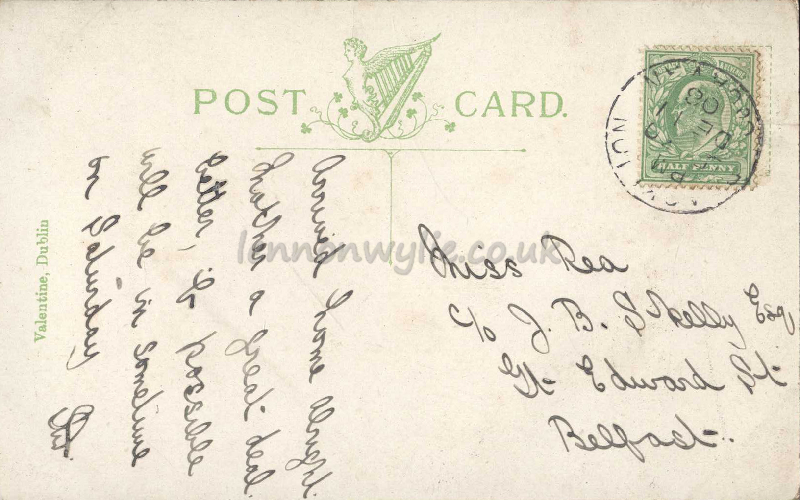 POST CARD.
HALF PENNY
Arrived home alright
Mother a great deal
better, if possible
will be in sometime
on Saturday
Valentine, Dublin
Miss Rea
c/o J. B. Skelly Esq
Gt Edward St
Belfast.
lennonwylie.co.uk